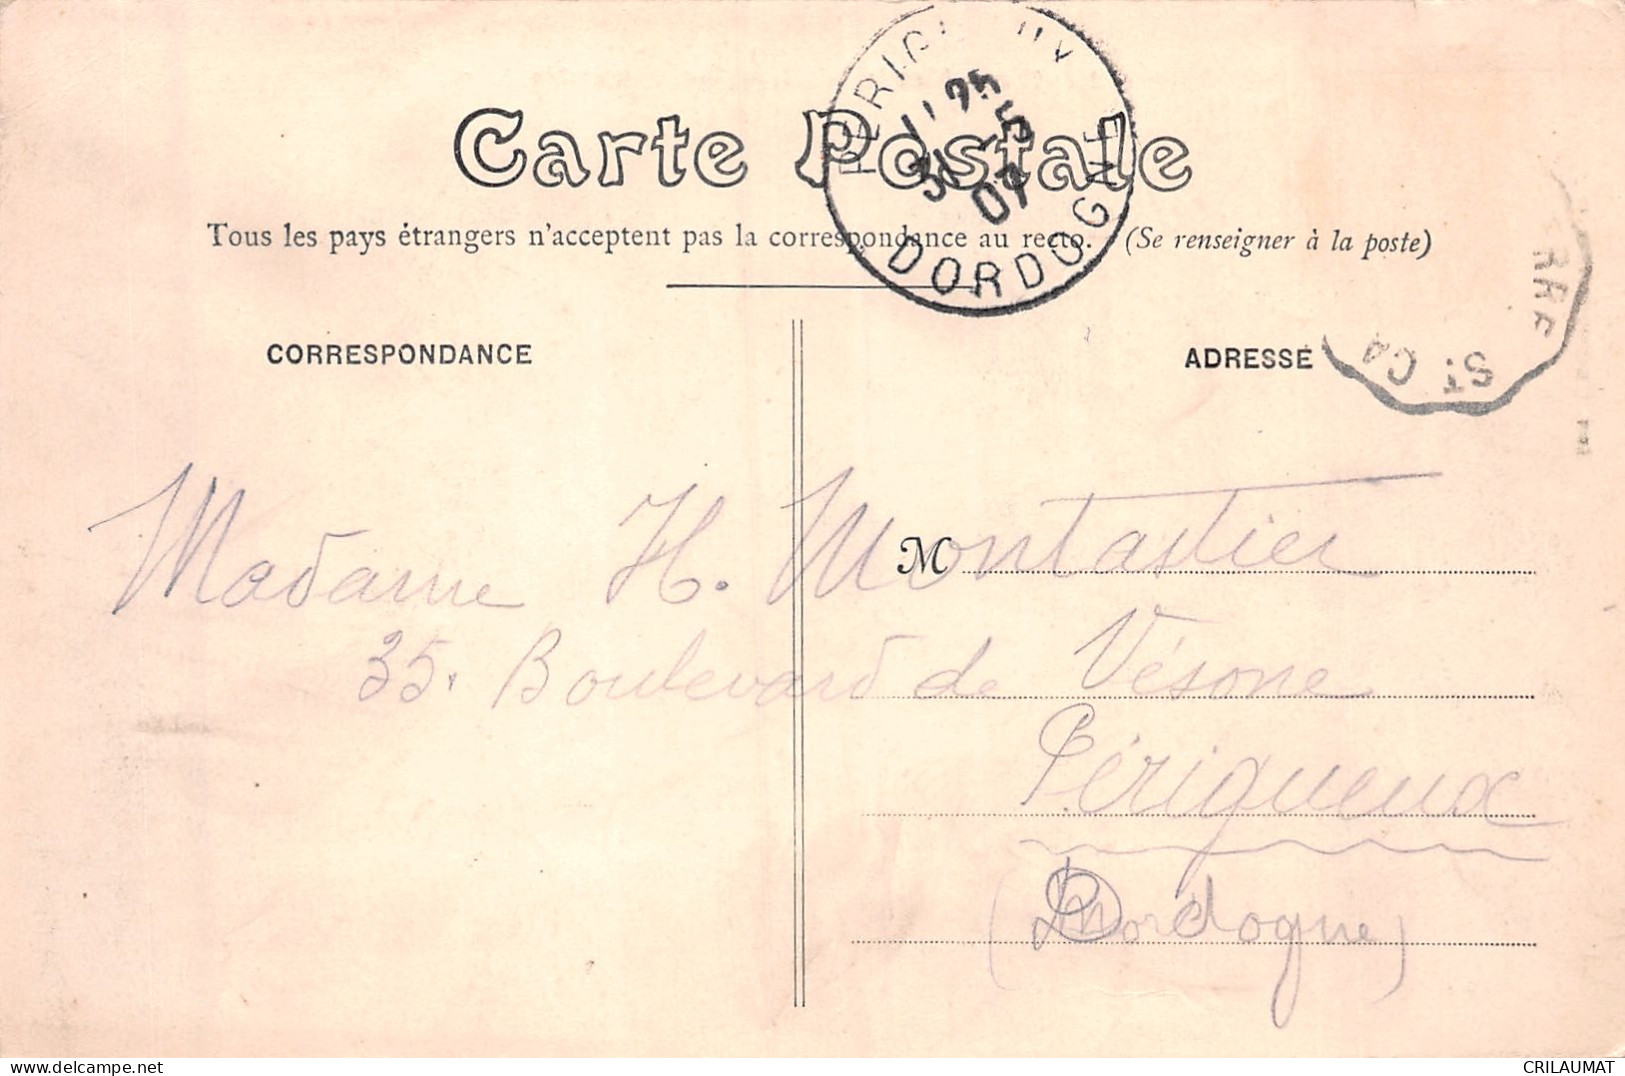 Carte Postale
Tous les pays étrangers n'acceptent pas la correspondance au recto. (Se renseigner à la poste)
DORDOGNE
31 -5
07
ST. CA
CORRESPONDANCE
ADRESSE
M
Madame H. Montastier
35. Boulevard de Vésone
Périgueux
(Dordogne)
CRILAUMAT